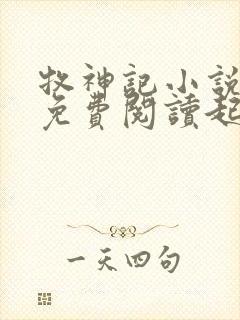 牧神記小說
免費閱讀起
一天四句